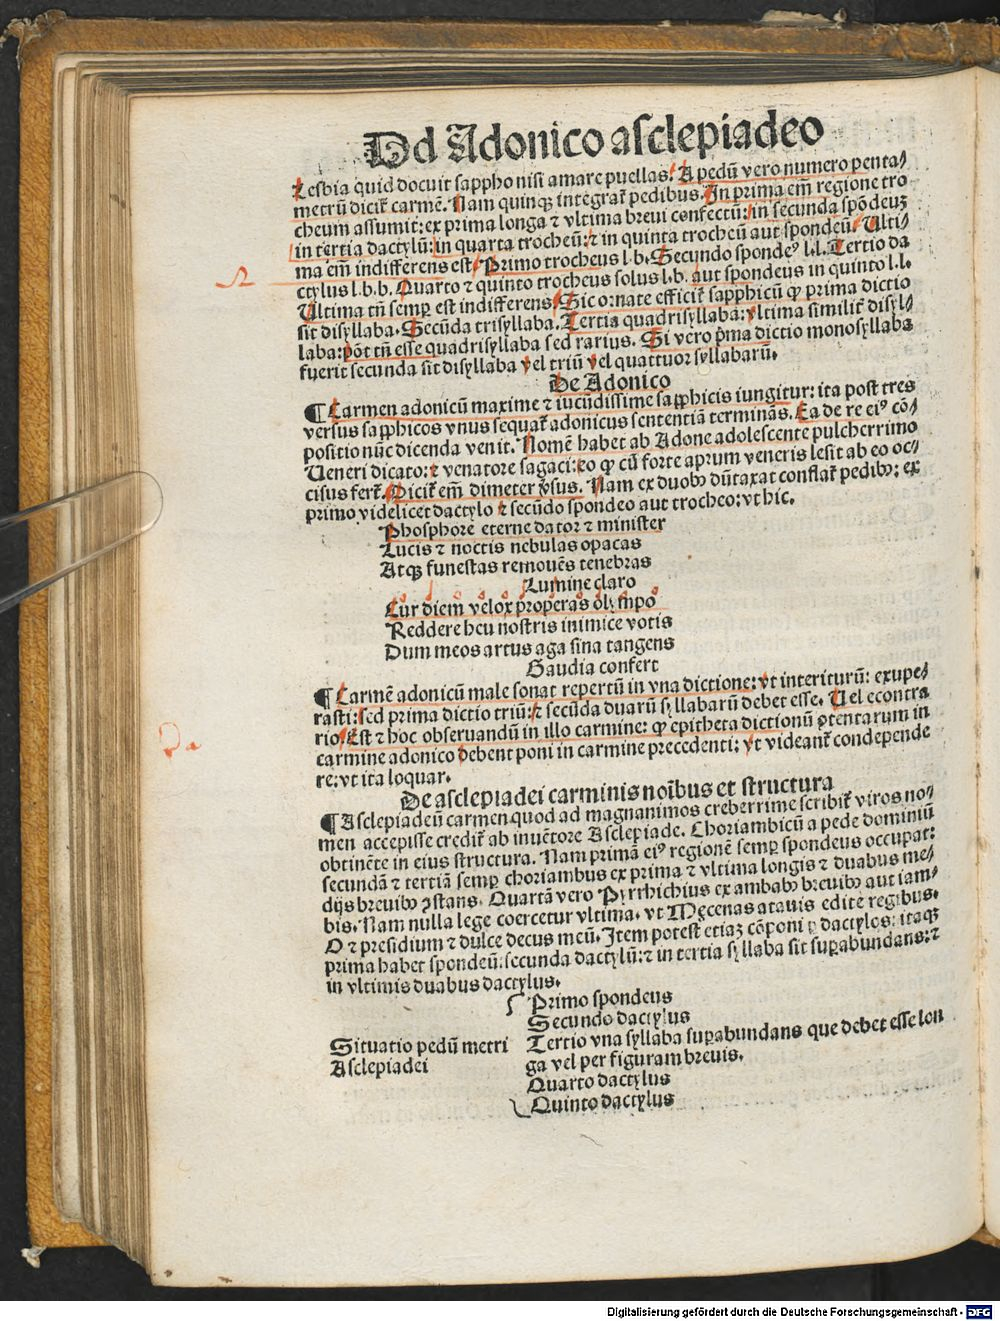 Dd Adonico asclepiadeo
Lesbia quid docuit sappho nisi amare puellas. A pedū vero numero penta/
metrū dicit̄ carmē. Nam quinqꝫ integrat̄ pedibus. In prima em̄ regione tro
cheum assumit: ex prima longa ⁊ vltima breui confectū: in secunda spōdeuꝫ
in tertia dactylū: in quarta trocheū: ⁊ in quinta trocheū aut spondeū. Ulti/
ma em̄ indifferens est. Primo trocheus l.b. Secundo spondeꝰ l.l. Tertio da
ctylus l.b.b. Quarto ⁊ quinto trocheus solus l.b. aut spondeus in quinto l.l.
Ultima tn̄ semꝑ est indifferens. Sic ornate efficit̄ sapphicū ꝙ prima dictio
sit disyllaba. Secūda trisyllaba. Tertia quadrisyllaba: vltima similit̄ disyl/
laba: pōt tn̄ esse quadrisyllaba sed rarius. Si vero p̄ma dictio monosyllaba
fuerit secunda sit disyllaba vel triū vel quattuor syllabarū.
De Adonico
¶ Carmen adonicū maxime ⁊ iucūdissime sapphicis iungitur: ita post tres
versus sapphicos vnus sequat̄ adonicus sententiā terminās. Ea de re eiꝰ cō/
positio nūc dicenda venit. Nomē habet ab Adone adolescente pulcherrimo
Ueneri dicato: ⁊ venatore sagaci: eo ꝙ cū forte aprum veneris lesit ab eo oc/
cisus fert̄. Dicit̄ em̄ dimeter v̓sus. Nam ex duobꝫ dūtaxat conflat̄ pedibꝫ: ex
primo videlicet dactylo ⁊ secūdo spondeo aut trocheo: vt hic.
Phosphore eterne dator ⁊ minister
Lucis ⁊ noctis nebulas opacas
Atqꝫ funestas remouēs tenebras
Lumine claro
Cur diem velox properas olympo
Reddere heu nostris inimice votis
Dum meos artus aga sina tangens
Gaudia confert
¶ Carmē adonicū male sonat repertū in vna dictione: vt interiturū: exupe/
rasti: sed prima dictio triū: ⁊ secūda duarū syllabarū debet esse. Uel econtra
rio. Est ⁊ hoc obseruandū in illo carmine: ꝙ epitheta dictionū ꝯtentarum in
carmine adonico debent poni in carmine precedenti: vt videant̄ condepende
re: vt ita loquar.
De asclepiadei carminis noībus et structura
¶ Asclepiadeū carmen quod ad magnanimos creberrime scribit̄ viros no/
men accepisse credit̄ ab inuētore Asclepiade. Choriambicū a pede dominiū
obtinēte in eius structura. Nam primā eiꝰ regionē semꝑ spondeus occupat:
secundā ⁊ tertiā semꝑ choriambus ex prima ⁊ vltima longis ⁊ duabus me/
dijs breuibꝫ ꝯstans. Quartā vero Pyrrhichius ex ambabꝫ breuibꝫ aut iam/
bis. Nam nulla lege coercetur vltima. vt Mecenas atauis edite regibus.
O ⁊ presidium ⁊ dulce decus meū. Item potest etiaꝫ cōponi ꝑ dactylos: itaqꝫ
prima habet spondeū: secunda dactylū: ⁊ in tertia syllaba sit suꝑabundans: ⁊
in vltimis duabus dactylus.
Situatio pedū metri
Asclepiadei
Primo spondeus
Secundo dactylus
Tertio vna syllaba suꝑabundans que debet esse lon
ga vel per figuram breuis.
Quarto dactylus
Quinto dactylus
Digitalisierung gefördert durch die Deutsche Forschungsgemeinschaft - DFG